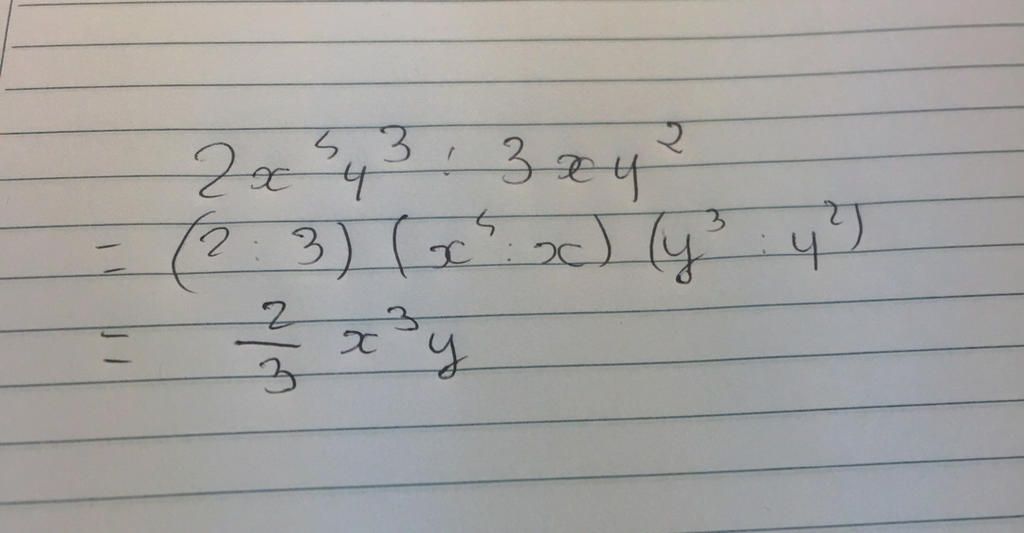 2x⁵y³ : 3xy²
= (2 : 3) (x⁵ : x) (y³ : y²)
= 2/3 x³y